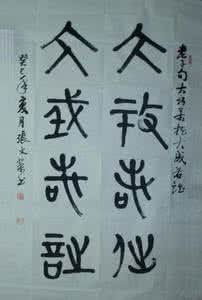 老子句大巧若拙大成若詘
大巧若拙
大成若詘
癸巳年夏月張文書